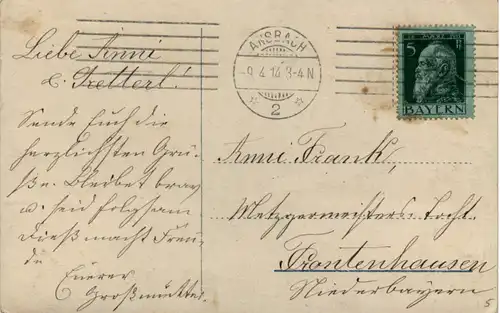 Liebe Anni
u. Fretterl!
Sende Euch die
herzlichsten Grü-
ße. Bleibet brav
u. seid folgsam
Dieß macht Freu-
de
Euerer
Großmutter.
ANSBACH
-9.4.14 3-4 N
2
5 Pf
BAYERN
Anni Frank,
Metzgermeisters-Tocht.
Frontenhausen
Niederbayern
5